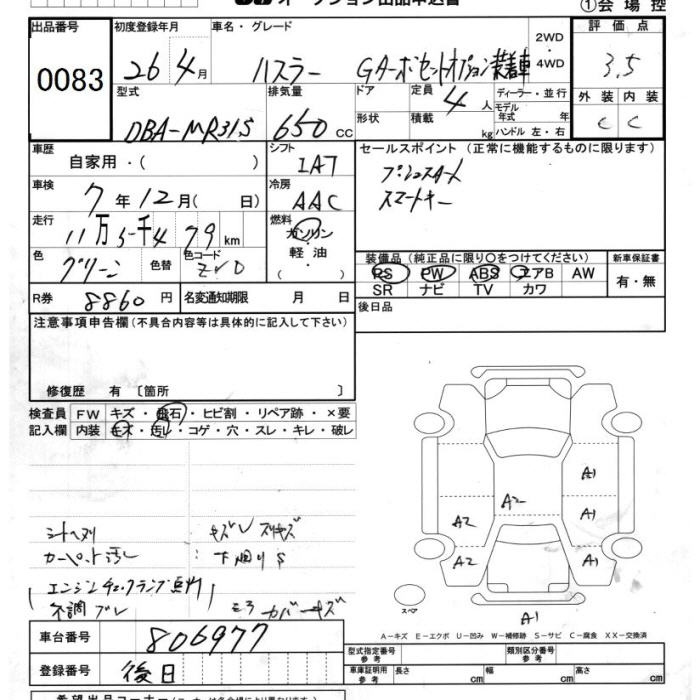 オークション出品申込書
①会場控
出品番号 初度登録年月 車名・グレード 2WD・4WD 評価点
0083 26年4月 ハスラー GA-ボセットオプション装着車 3.5
型式 排気量 ドア 定員 ディーラー・並行 外装 内装
DBA-MR31S 650cc 4人 モデル年式 年 C C
形状 積載 kg ハンドル 左・右
車歴 シフト セールスポイント(正常に機能するものに限ります)
自家用・( ) IAT プシュスタート
車検 冷房 スマートキー
7年12月( 日) AAC
走行 燃料
11万5千479km ガソリン・軽油
色 色替 色コード 装備品(純正品に限り○をつけてください) 新車保証書
グリーン ZVD PS PW ABS エアB AW 有・無
SR ナビ TV カワ
R券 8860円 名変通知期限 月 日 後日品
注意事項申告欄(不具合内容等は具体的に記入して下さい)
修復歴 有 〔箇所 〕
検査員 FW キズ・飛石・ヒビ割・リペア跡・×要
記入欄 内装 キズ・汚レ・コゲ・穴・スレ・キレ・破レ
A1
A2 A2 A1
A2 A1
シートヘタリ
カーペット汚レ 下廻りS
エンジンチェックランプ点灯
不調 ブレ カバーキズ
スペア A1
A-キズ E-エクボ U-凹み W-補修跡 S-サビ C-腐食 XX-交換済
車台番号 806977
型式指定番号 参考 類別区分番号 参考
登録番号 後日
車庫証明用 参考 長さ cm 幅 cm 高さ cm
希望出品コーナー